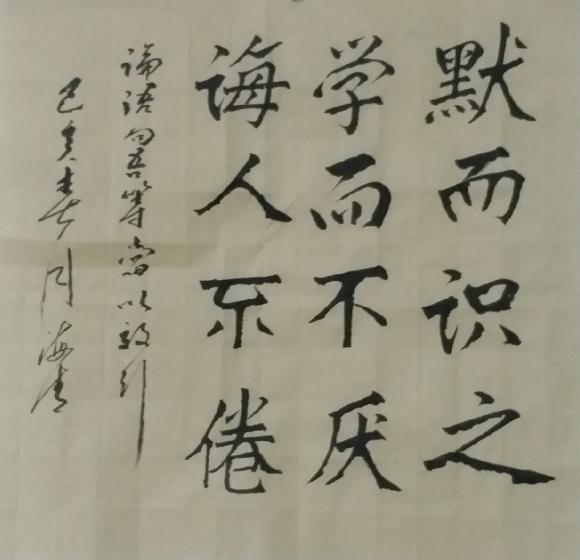 默而识之
学而不厌
诲人不倦
论语句吾等当以效行
己亥春月海清